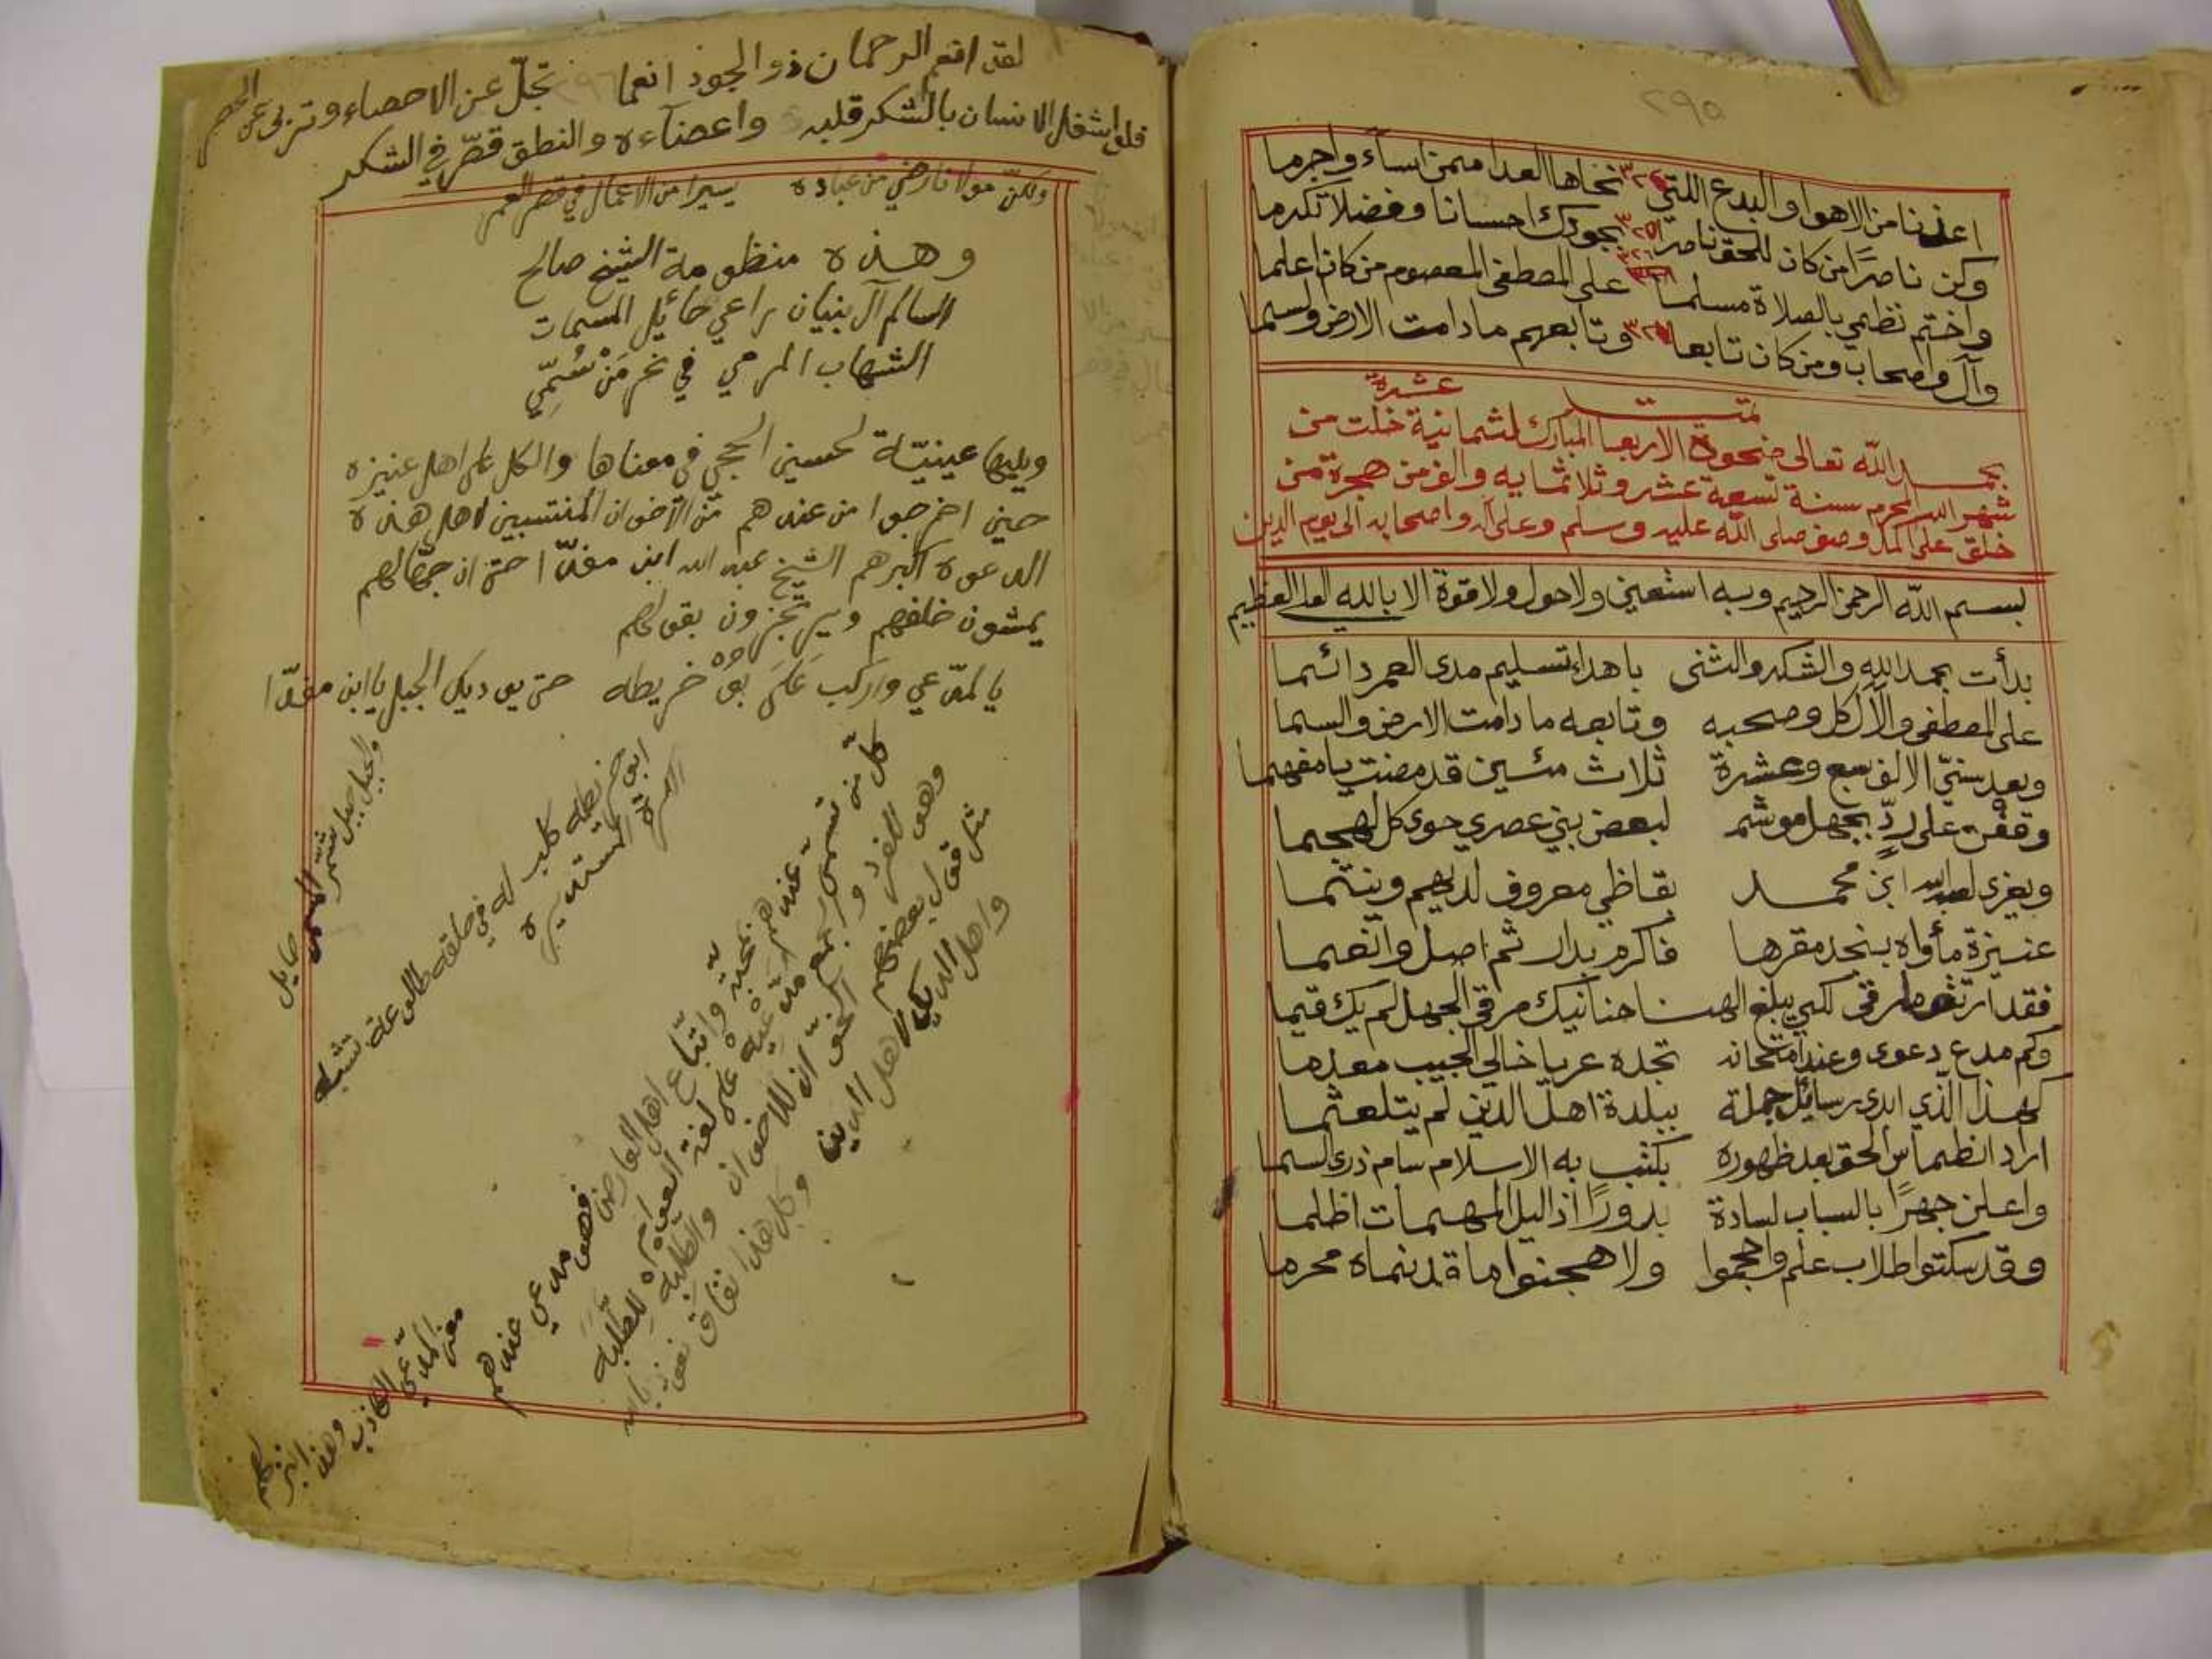 ٢٩٥
اعذنا من الاهوا والبدع اللتي ٣٢٤ نحاها العدا ممن اساء واجرما
وكن ناصرًا من كان للحق ناصرًا ٣٢٥ بجودك احسانا وفضلا تكرما
واختم نظمي بالصلاة مسلما ٣٢٦ على المصطفى المعصوم من كان اعلما
وآل واصحاب ومن كان تابعا ٣٢٧ وتابعهم ما دامت الارض والسما
تمت
بحمد الله تعالى ضحوة الاربعا المبارك لثمانية عشرة خلت من
شهر الله المحرم سنة تسعة عشر وثلاثمايه والف من هجرة من
خلق على اكمل وصف صلى الله عليه وسلم وعلى آله واصحابه الى يوم الدين
بسم الله الرحمن الرحيم وبه استعين ولا حول ولا قوة الا بالله العلي العظيم
بدأت بحمد الله والشكر والثنى باهداء تسليم مدى العمر دائما
على المصطفى والآل كل وصحبه وتابعه ما دامت الارض والسما
وبعد سنيّ الالف سبع وعشرة ثلاث مئين قد مضت يا مفهما
وقفن على ردٍّ بجهل موشم لبعض بني عصري حوى كل لهجما
ويعزى لعبد الله ابن محمد بقاظي معروف لديهم وينتما
عنيزة مأواه بنجد مقرها فاكرم بدار ثم اصل وانعما
فقد ارتقى مارقى لكي يبلغ الهنا حنانيك مرقى الجهل لم يك قيما
وكم مدع دعوى وعند امتحانه تجده عريا خالي الجيب معدما
كهذا الذي ابدى رسائل جملة ببلدة اهل الدين لم يتلعثما
اراد انطماس الحق بعد ظهوره بكتب به الاسلام سام ذرى السما
واعلن جهرًا بالسباب لسادة بدورًا اذا ليل المهمات اظلما
وقد سكتوا طلاب علم واحجموا ولا هجنوا ما قد نماه محرما
لقد انعم الرحمان ذو الجود انعما تجلّ عن الاحصاء وتربى عن الحصر
فلو اشغل الانسان بالشكر قلبه واعضآءه والنطق قصّر في الشكر
ولكنّ مولانا رضي من عباده يسيرا من الاعمال في قصر العمر
وهذه منظومة الشيخ صالح
السالم آل بنيان راعي حائل المسمات
الشهاب المرمي في نحر مَنْ سُمِّي
ويليها عينيّة لحسين الحجي في معناها والكل على اهل عنيزه
حين اخرجوا من عندهم من الاخوان المنتسبين لاهل هذه
الدعوة اكبرهم الشيخ عبد الله ابن مفدّا حتى ان جهّالهم
يمشون خلفهم ويرتجزون بقولهم
يا لمدّعي واركب على بو خريطه حتى يو ديك الجبل يا ابن مفدّا
والجبل جبل شمّر المسمى حايل
ابو خريطه كلب له في حلقه طالوعة تشبه
الصرة المستديرة
كلّ من تسمى
عندهم بمحبّة واتّباع اهل العارض
فهو مدعي عندهم
معنى المدّعي الكاذب وهذا نبز لهم
وهو المفرد والجمع مدّعيه على لغة العوام
مثل قول بعضهم
للاخوان والطلبة
واهل الديك لاهل الدين وكل هذا نفاق نعوذ بالله